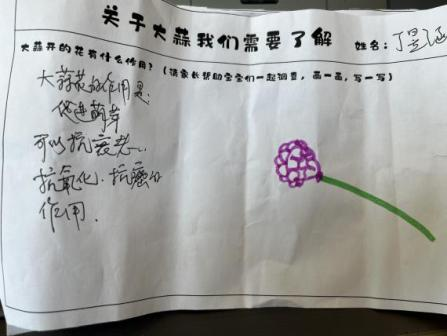 关于大蒜我们需要了解
姓名：丁昱涵
大蒜开的花有什么作用？（请家长帮助宝宝们一起调查，画一画，写一写）
大蒜花的作用是:
促进萌芽
可以抗衰老、
抗氧化、抗癌的
作用.